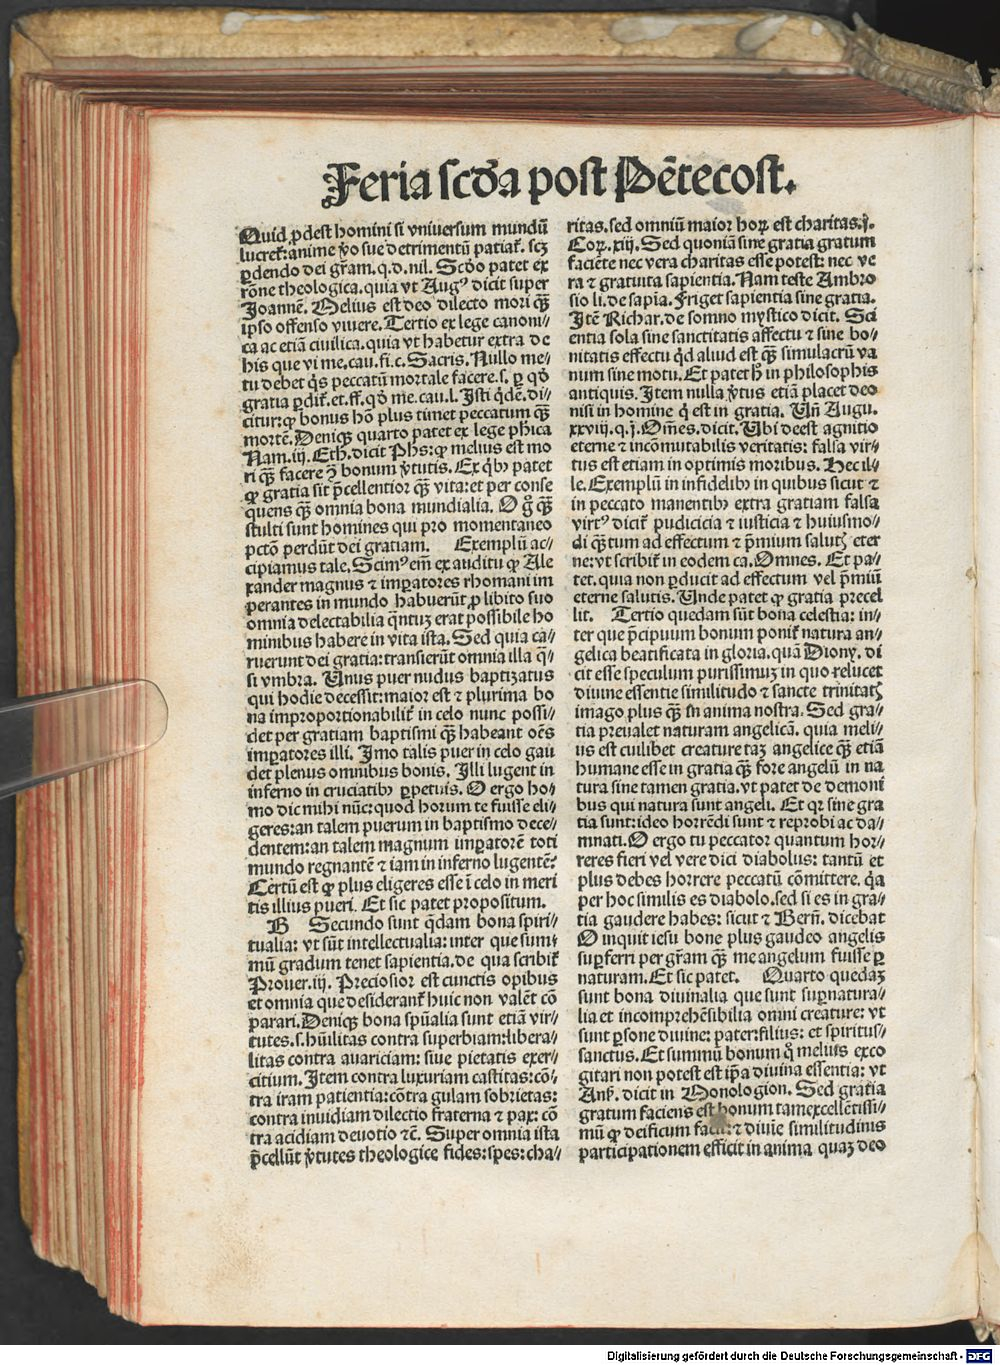 Feria scďa post Pētecost.
Quid ꝓdest homini si vniuersum mundū
lucret̄: anime ꝟo sue detrimentū patiat̄. scꝫ
ꝑdendo dei gr̄am. q. d. nil. Scďo patet ex
rōne theologica. quia vt Augꝰ dicit super
Joannē. Melius est deo dilecto mori qꝫ̄
ipso offenso viuere. Tertio ex lege canoni⸗
ca ac etiā ciuilica. quia vt habetur extra de
his que vi me. cau. fi. c. Sacris. Nullo me⸗
tu debet q̇s peccatū mortale facere. s. ꝑ qď
gratia ꝑdit̄. et. ff. qď me. cau. l. Isti q̇dē. di⸗
citur: ꝙ bonus hō plus timet peccatum qꝫ̄
mortē. Deniqꝫ quarto patet ex lege ph̄ica
Nam. iij. Eth̄. dicit Ph̄s: ꝙ melius est mo
ri qꝫ̄ facere ↄ̄ bonum ꝟtutis. Ex q̇bꝰ patet
ꝙ gratia sit p̄cellentior qꝫ̄ vita: et per conse
quens qꝫ̄ omnia bona mundialia. O g̊ qꝫ̄
stulti sunt homines qui pro momentaneo
pctō perdūt dei gratiam. Exemplū ac⸗
cipiamus tale. Scimꝰ em̄ ex auditu ꝙ Ale
xander magnus ⁊ imꝑatores rhomani im
perantes in mundo habuerūt ꝓ libito suo
omnia delectabilia q̄ntuꝫ erat possibile ho
minibus habere in vita ista. Sed quia ca⸗
ruerunt dei gratia: transierūt omnia illa q̄⸗
si vmbra. Unus puer nudus baptizatus
qui hodie decessit: maior est ⁊ plurima bo
na improportionabilit̄ in celo nunc possi⸗
det per gratiam baptismi qꝫ̄ habeant oēs
imꝑatores illi. Imo talis puer in celo gau
det plenus omnibus bonis. Illi lugent in
inferno in cruciatibꝰ ꝑpetuis. O ergo ho⸗
mo dic mihi nūc: quod horum te fuisse eli⸗
geres: an talem puerum in baptismo dece⸗
dentem: an talem magnum imꝑatorē toti
mundo regnantē ⁊ iam in inferno lugentē?
Certū est ꝙ plus eligeres esse ī celo in meri
tis illius pueri. Et sic patet propositum.
B Secundo sunt q̇dam bona spiri⸗
tualia: vt sūt intellectualia: inter que sum⸗
mū gradum tenet sapientia. de qua scribit̄
Prouer. iij. Preciosior est cunctis opibus
et omnia que desiderant̄ huic non valēt cō
parari. Deniqꝫ bona spūalia sunt etiā vir⸗
tutes. s. hūilitas contra superbiam: libera⸗
litas contra auariciam: siue pietatis exer⸗
citium. Item contra luxuriam castitas: cō⸗
tra iram patientia: cōtra gulam sobrietas:
contra inuidiam dilectio fraterna ⁊ pax: cō
tra acidiam deuotio ⁊c̄. Super omnia ista
p̄cellūt ꝟtutes theologice fides: spes: cha⸗
ritas. sed omniū maior hoꝝ est charitas. j.
Coꝝ. xiij. Sed quoniā sine gratia gratum
faciēte nec vera charitas esse potest: nec ve
ra ⁊ gratuita sapientia. Nam teste Ambro
sio li. de sapīa. Friget sapientia sine gratia.
Itē Richar. de somno mystico dicit. Sci
entia sola sine sanctitatis affectu ⁊ sine bo⸗
nitatis effectu qd̄ aliud est qꝫ̄ simulacrū va
num sine motu. Et patet h̄ in philosophis
antiquis. Item nulla ꝟtus etiā placet deo
nisi in homine q̇ est in gratia. Un̄ Augu.
xxviij. q. j. Om̄es. dicit. Ubi deest agnitio
eterne ⁊ incōmutabilis veritatis: falsa vir⸗
tus est etiam in optimis moribus. Hec il⸗
le. Exemplū in infidelibꝰ in quibus sicut ⁊
in peccato manentibꝰ extra gratiam falsa
virtꝰ dicit̄ pudicicia ⁊ iusticia ⁊ huiusmo⸗
di qꝫ̄tum ad effectum ⁊ p̄mium salutꝭ eter
ne: vt scribit̄ in eodem ca. Omnes. Et pa⸗
tet. quia non ꝑducit ad effectum vel p̄miū
eterne salutis. Unde patet ꝙ gratia precel
lit. Tertio quedam sūt bona celestia: in⸗
ter que p̄cipuum bonum ponit̄ natura an⸗
gelica beatificata in gloria. quā Diony. di
cit esse speculum purissimuꝫ in quo relucet
diuine essentie similitudo ⁊ sancte trinitatꝭ
imago plus qꝫ̄ in anima nostra. Sed gra⸗
tia preualet naturam angelicā. quia meli⸗
us est cuilibet creature taꝫ angelice qꝫ̄ etiā
humane esse in gratia qꝫ̄ fore angelū in na
tura sine tamen gratia. vt patet de demoni
bus qui natura sunt angeli. Et qꝛ sine gra
tia sunt: ideo horrēdi sunt ⁊ reprobi ac da⸗
mnati. O ergo tu peccator quantum hor⸗
reres fieri vel vere dici diabolus: tantū et
plus debes horrere peccatū cōmittere. q̇a
per hoc similis es diabolo. sed si es in gra⸗
tia gaudere habes: sicut ⁊ Bern̄. dicebat
O inquit iesu bone plus gaudeo angelis
suꝑferri per gr̄am qꝫ̄ me angelum fuisse ꝑ
naturam. Et sic patet. Quarto quedaꝫ
sunt bona diuinalia que sunt suꝑnatura⸗
lia et incomprehēsibilia omni creature: vt
sunt ꝑsone diuine: pater: filius: et spiritus⸗
sanctus. Et summū bonum q̊ melius exco
gitari non potest est ip̄a diuina essentia: vt
Anẜ. dicit in Monologion. Sed gratia
gratum faciens est bonum tam excellētissi⸗
mū ꝙ deificum ⁊ diuīe similitudinis
participationem efficit in anima quaꝫ deo
Digitalisierung gefördert durch die Deutsche Forschungsgemeinschaft - DFG